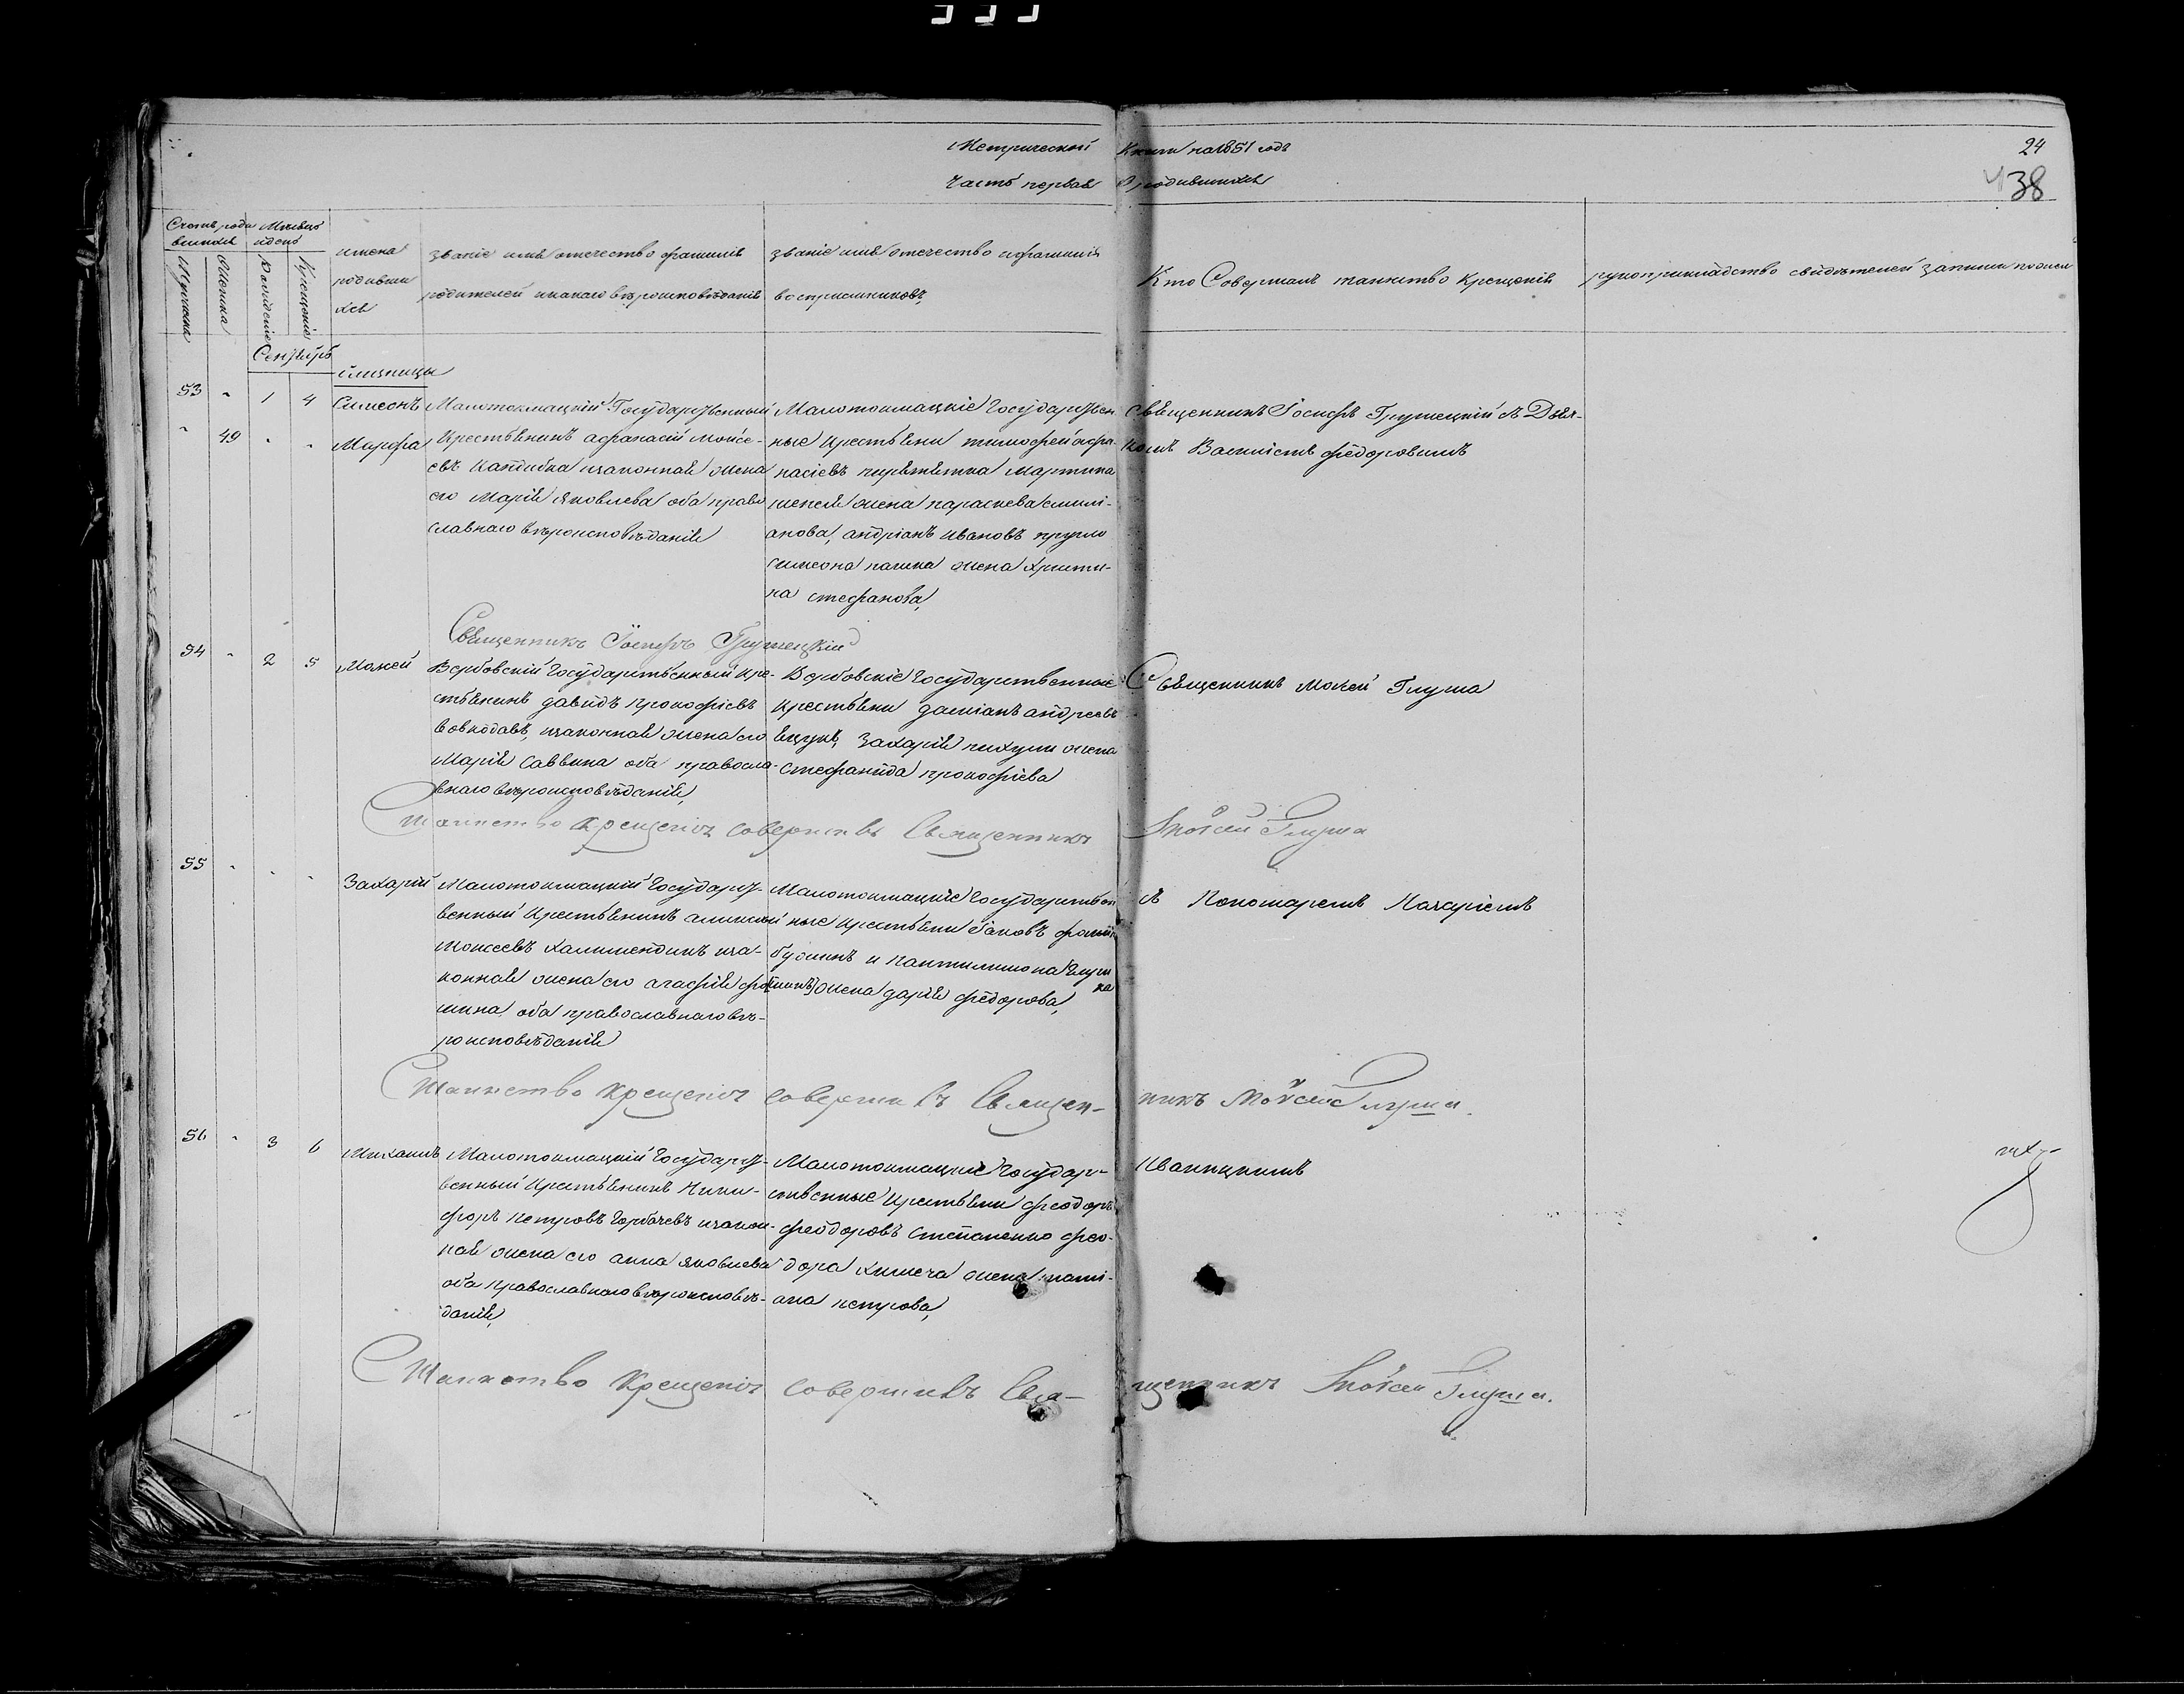 Метрической Книги на 1851 годъ
24
Часть первая О родившихся
38
Счетъ роди Месяцъ
вшихся и день
Мужска Женска Рожденія Крещенія
имена
родивши
хся
званіе имя отечество фамилія
родителей и какого вѣроисповѣданія
званіе имя отечество и фамилія
воспріемниковъ,
Кто Совершалъ таинство Крещенія
рукоприкладство свидѣтелей записи
Сентябрь
близнецы
53 - 1 4 Симеонъ
- 49 - - Марфа
Малотокмацкій Государственный
Крестьянинъ афанасій Моисе-
евъ Кандиба и законная жена
его Марія Яковлева оба право
славнаго вѣроисповѣданія
Малотокмацкіе Государствен
ные крестьяни тимофей афа-
насіевъ мартина
жена параскева емилі-
анова, андріанъ Ивановъ
Симеона жена Христи-
на стефанова,
Священникъ Іосифъ Грушецкій съ Дья-
комъ Василіемъ Федоровымъ
Священникъ Іосифъ Грушецкій
54 - 2 5 Моисей
Вербовскій Государственный кре-
стьянинъ давидъ прокофіевъ
вовкодавъ, и законная жена его
Марія Саввина оба правосла-
внаго вѣроисповѣданія,
Вербовскіе Государственные
крестьяни даміанъ андреевъ
Захарія жена
Стефанида прокофіева
Священникъ Моисей Глуша
Таинство крещенія совершивъ Священникъ Моѵсей Глуша
55 - - - Захарій
Малотокмацкій Государст-
венный Крестьянинъ
Моисеевъ и за-
конная жена его агафія
мина оба православнаго вѣ-
роисповѣданія
Малотокмацкіе Государствен
ные крестьяни Іаковъ
и пантилимона Глуш
ка жена дарія федорова,
съ Пономаремъ Макаріемъ
Таинство крещенія совершивъ Священ- никъ Моѵсей Глуша.
56 - 3 6 Михаилъ
Малотокмацкій Государст-
венный Крестьянинъ Ники-
форъ петровъ Горбачевъ и закон-
ная жена его анна Яковлева
оба православнаго вѣроисповѣ-
данія,
Малотокмацкіе Государ-
ственные крестьяни феодоръ
феодоровъ Степаненко фео-
дора жена таті-
ана петрова,
Иваницкимъ
Таинство Крещенія совершивъ Свя- щенникъ Моѵсей Глуша.